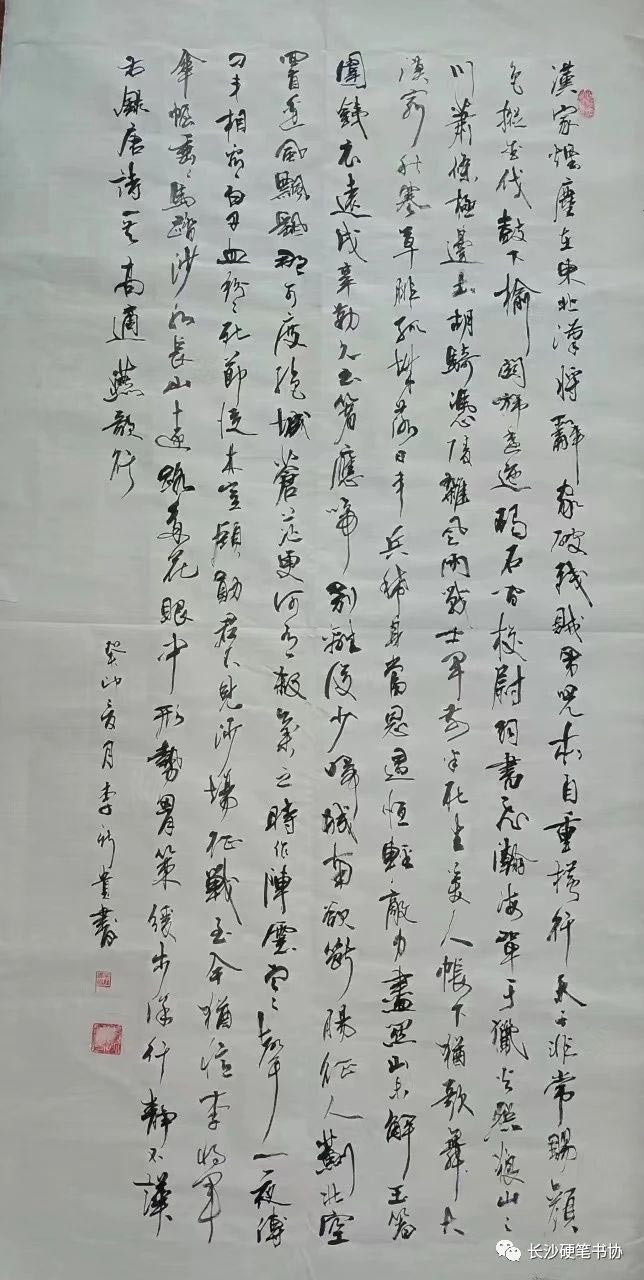 漢家煙塵在東北漢將辭家破殘賊男兒本自重橫行天子非常賜顏
色摐金伐鼓下榆關旆逶迤碣石間校尉羽書飛瀚海單于獵火照狼山々
川蕭條極邊土胡騎憑陵雜風雨戰士軍前半死生美人帳下猶歌舞大
漠窮秋塞草腓孤城落日鬥兵稀身當恩遇恒輕敵力盡關山未解玉箸
圍鐵衣遠戍辛勤久玉箸應啼別離後少婦城南欲斷腸征人薊北空
回首邊風飄飄那可度絕域蒼茫更何有殺氣三時作陣雲寒々聲一夜傳
刁斗相看白刃血紛々死節從來豈顧勛君不見沙場征戰至今猶憶李將軍
傘幄垂々馬踏沙水長山遠路多花眼中形勢胸策緩步徐行靜不譁
右錄唐詩一首高適燕歌行
癸卯月李新貴書
长沙硬笔书协